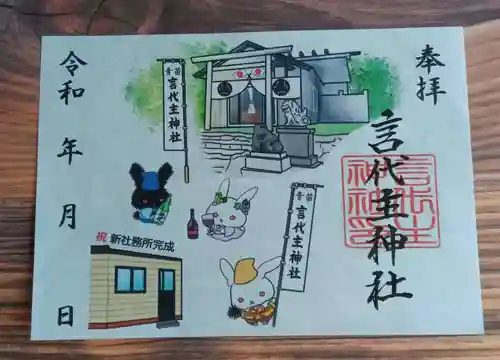 奉拝
言代主神社
言代主神社印
青苗
言代主神社
青苗
言代主神社
祝 新社務所完成
令和 年 月 日